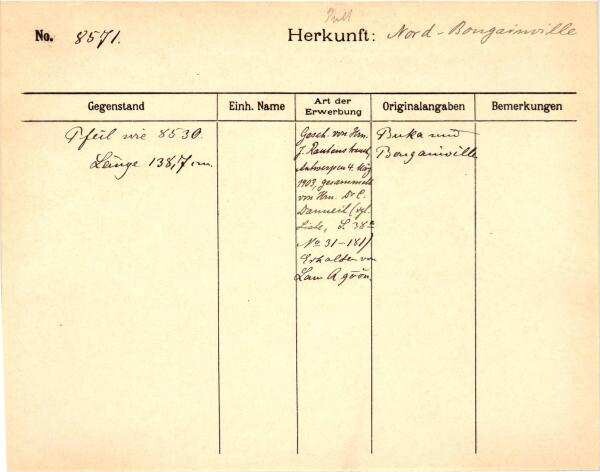 No. 8571. Herkunft: Nord-Bougainville
Gegenstand
Einh. Name
Art der
Erwerbung
Originalangaben
Bemerkungen
Pfeil wie 8530.
Länge 138,7 cm.
Gesch. von Hrn.
J. Rautenstrauch,
Antwerpen 4. März
1903, gesammelt
von Hrn. Dr. C.
Danneil (vgl.
Liste, S. 38a
No 31-181)
Erhalten von
Lam A
Buka und
Bougainville